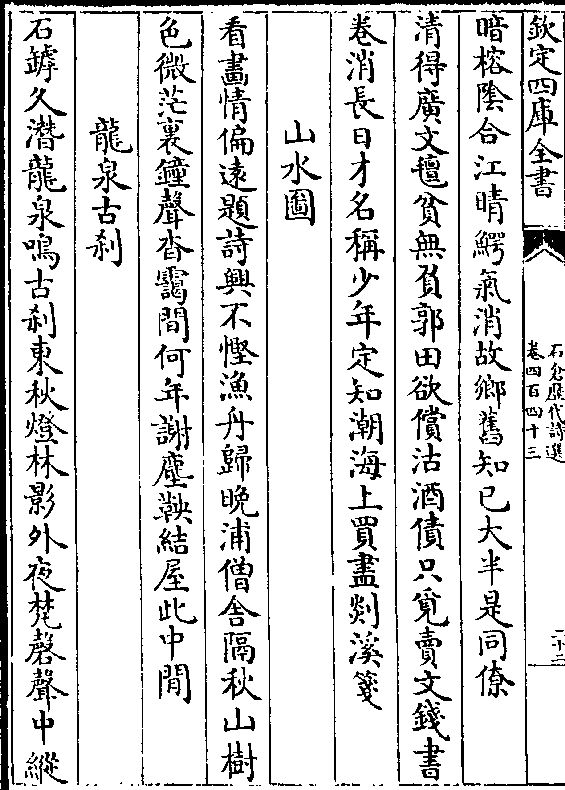 欽定四庫全書
石倉歷代詩選
卷四百四十三
二十三
暗榕陰合江晴鰐氣消故鄉舊知已大半是同僚
清得廣文氊貧無負郭田欲償沽酒債只覓賣文錢書
卷消長日才名稱少年定知潮海上買盡剡溪箋
山水圖
看畫情偏遠題詩興不慳漁舟歸晚浦僧舍隔秋山樹
色微茫裏鐘聲杳靄間何年謝塵鞅結屋此中閒
龍泉古刹
石罅久潛龍泉鳴古刹東秋燈林影外夜梵磬聲中縱